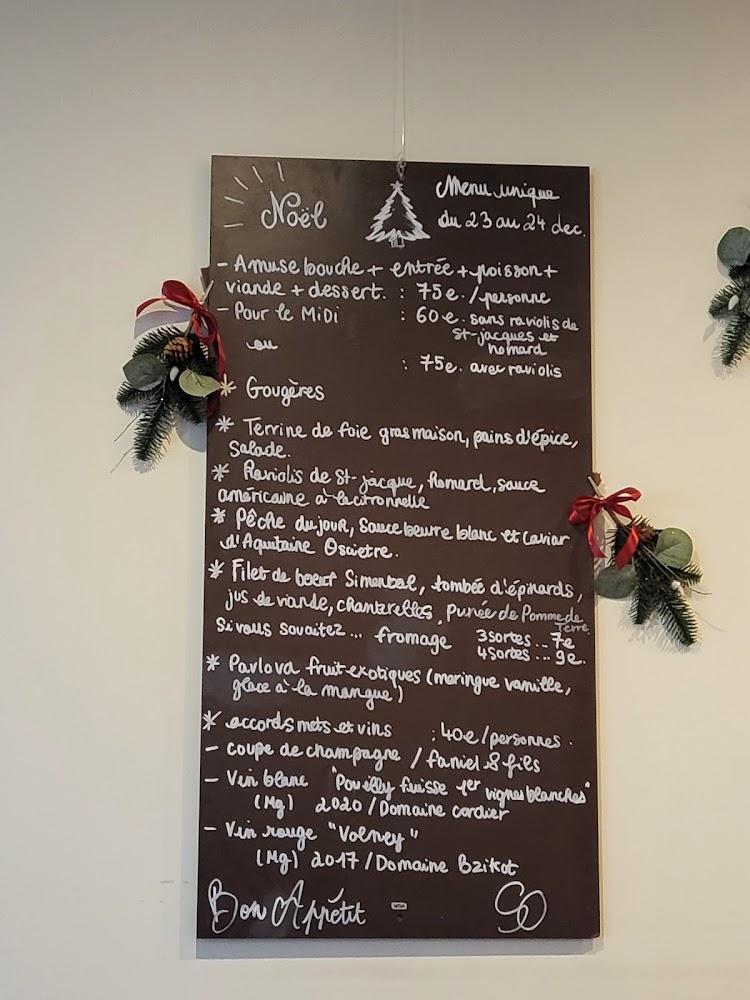 Noël
Menu unique
du 23 au 24 dec.
- Amuse bouche + entrée + poisson +
viande + dessert. : 75e. / personne
- Pour le MiDi : 60e. sans raviolis de
St-jacques et
homard
ou
: 75e. avec raviolis
* Gougères
* Terrine de foie gras maison, pains d'épice,
Salade.
* Raviolis de St-jacque, Homard, sauce
américaine à la citronnelle
* Pêche du jour, Sauce beurre blanc et Caviar
d'Aquitaine Oscietre.
* Filet de boeuf Simental, tombée d'épinards,
jus de viande, chanterelles, purée de Pomme de
Terre.
Si vous souaitez... fromage 3 Sortes... 7e
4 Sortes... 9e.
* Pavlova fruit exotiques (meringue vanille,
glace à la mangue)
* accords mets et vins : 40e / personnes.
- coupe de champagne / Faniel & fils
- Vin blanc "Pouilly fuisse 1er vignes blanches"
(Mg) 2020 / Domaine cordier
- Vin rouge "Volney"
(Mg) 2017 / Domaine Bzikot
Bon Appétit
SO